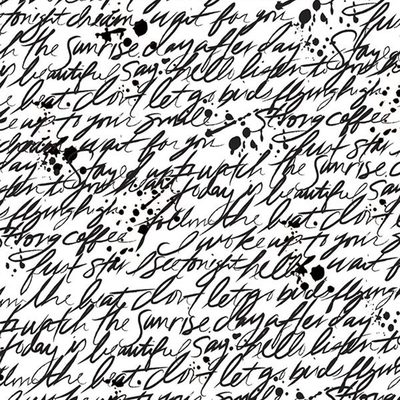 tonight dream, wait for you first
h the sunrise day after day Stayed
is beautiful Say: hello listen to your
he beat. don't let go birds flying high
ke up to your smile Strong coffee
wait for you first star
day Stayed up to watch the sunrise d
ten to your Today is beautiful Say
flying high Follow the beat. don't
Strong coffee I woke up to your
first star I see tonight hello wait f
the beat. don't let go birds flying
up to watch the sunrise day after day
today is beautiful Say: hello listen to
follow the beat. don't let go birds flying
woke up to your smile Strong coffee